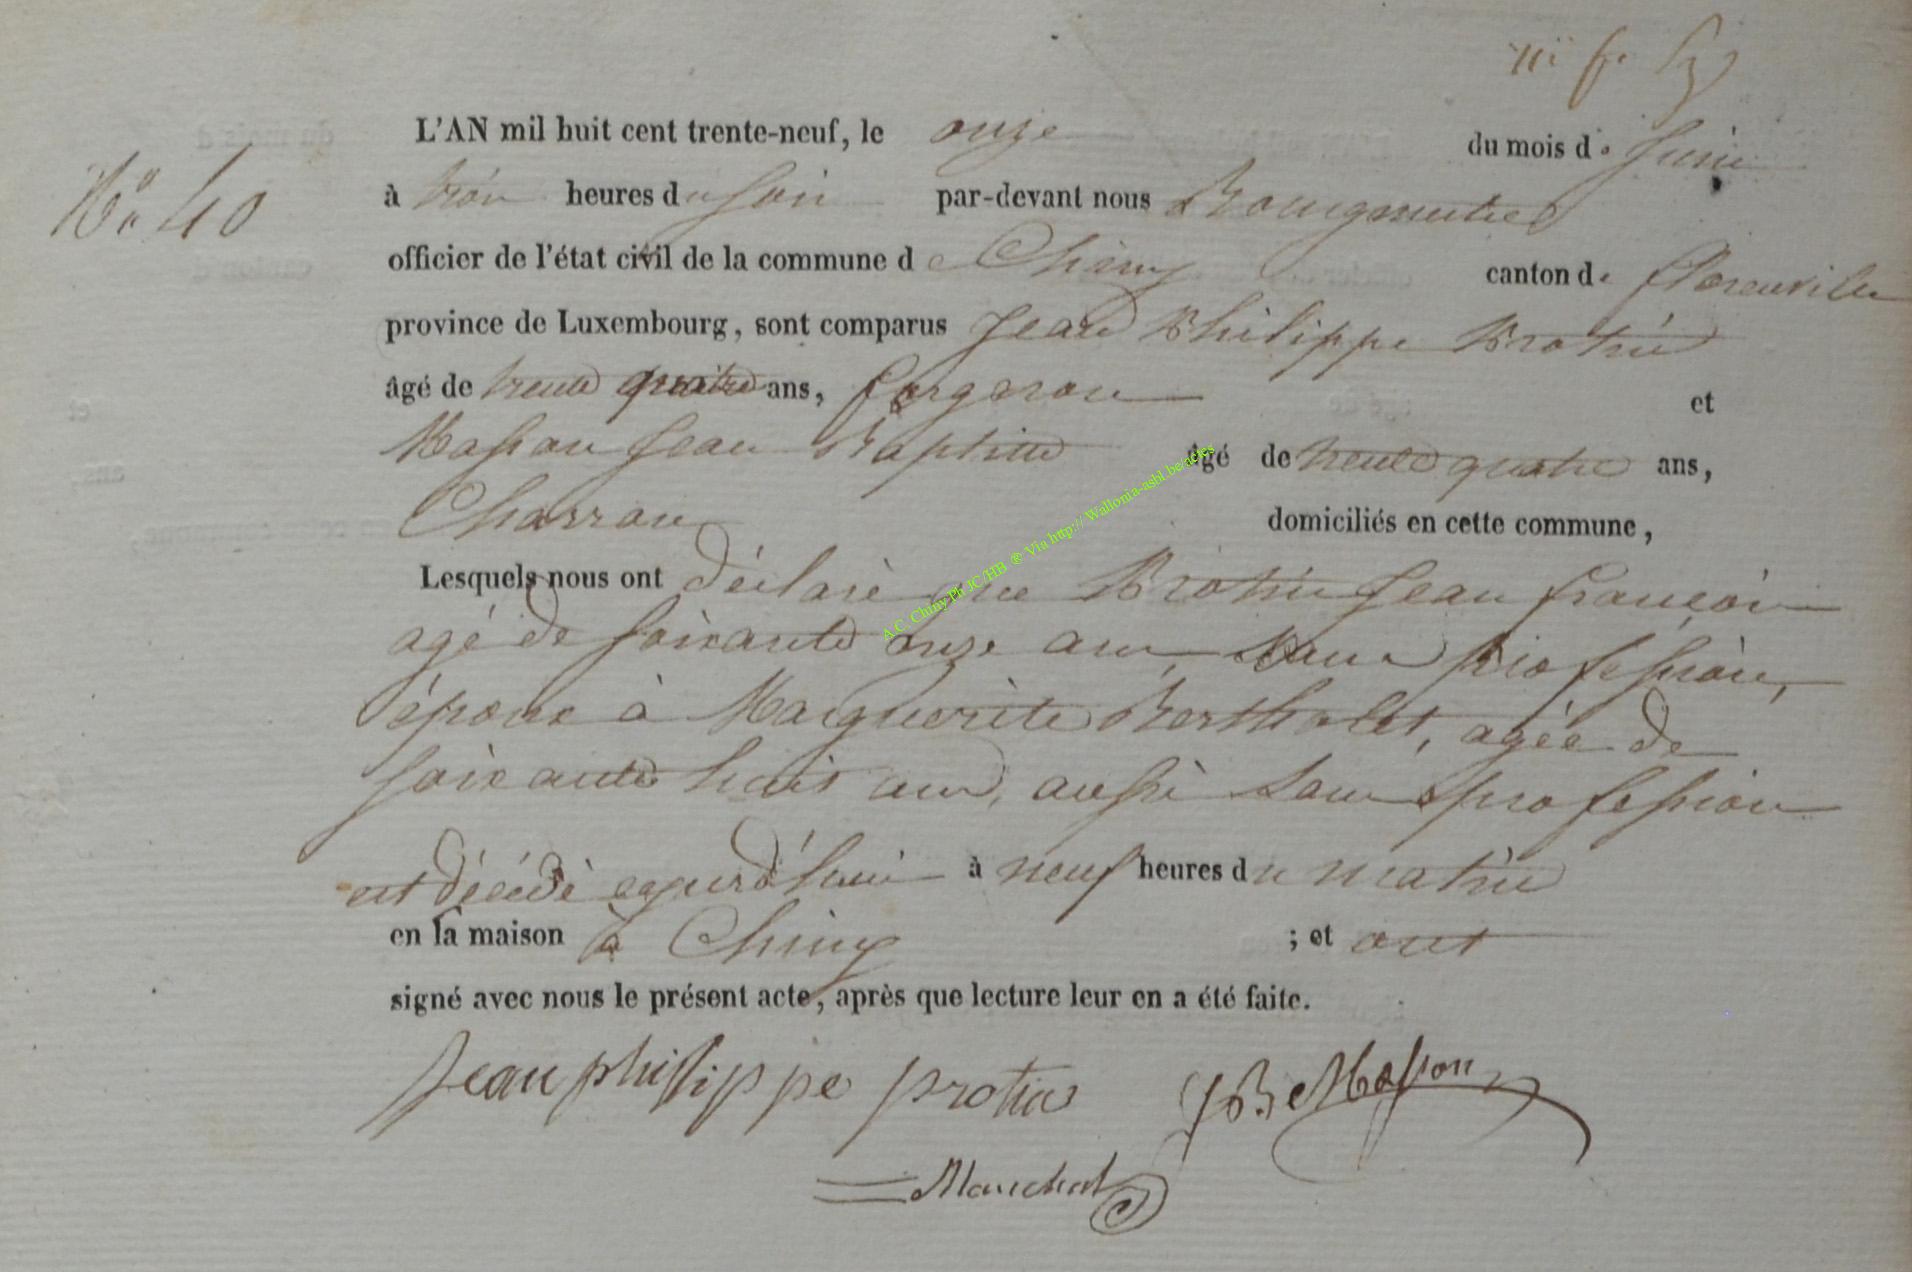 L'AN mil huit cent trente-neuf, le onze du mois de Juin
N° 40
à trois heures du soir par-devant nous Bourgmestre
officier de l'état civil de la commune de Chiny canton de florenville
province de Luxembourg, sont comparus Jean Philippe Protin
âgé de trente quatre ans, forgeron et
Masson Jean Baptiste âgé de trente quatre ans,
Charron domiciliés en cette commune,
Lesquels nous ont déclaré que Protin Jean françois
agé de soixante onze ans, sans profession,
époux à Marguerite Bertholet, agée de
soixante huit ans, aussi sans profession
est décédé aujourd'hui à neuf heures du matin
en sa maison à Chiny ; et ont
signé avec nous le présent acte, après que lecture leur en a été faite.
Jean philippe protin JB Masson
Marechal
A.C. Chiny Ph JC/HB ® Via http:// Wallonia-asbl.be/actes